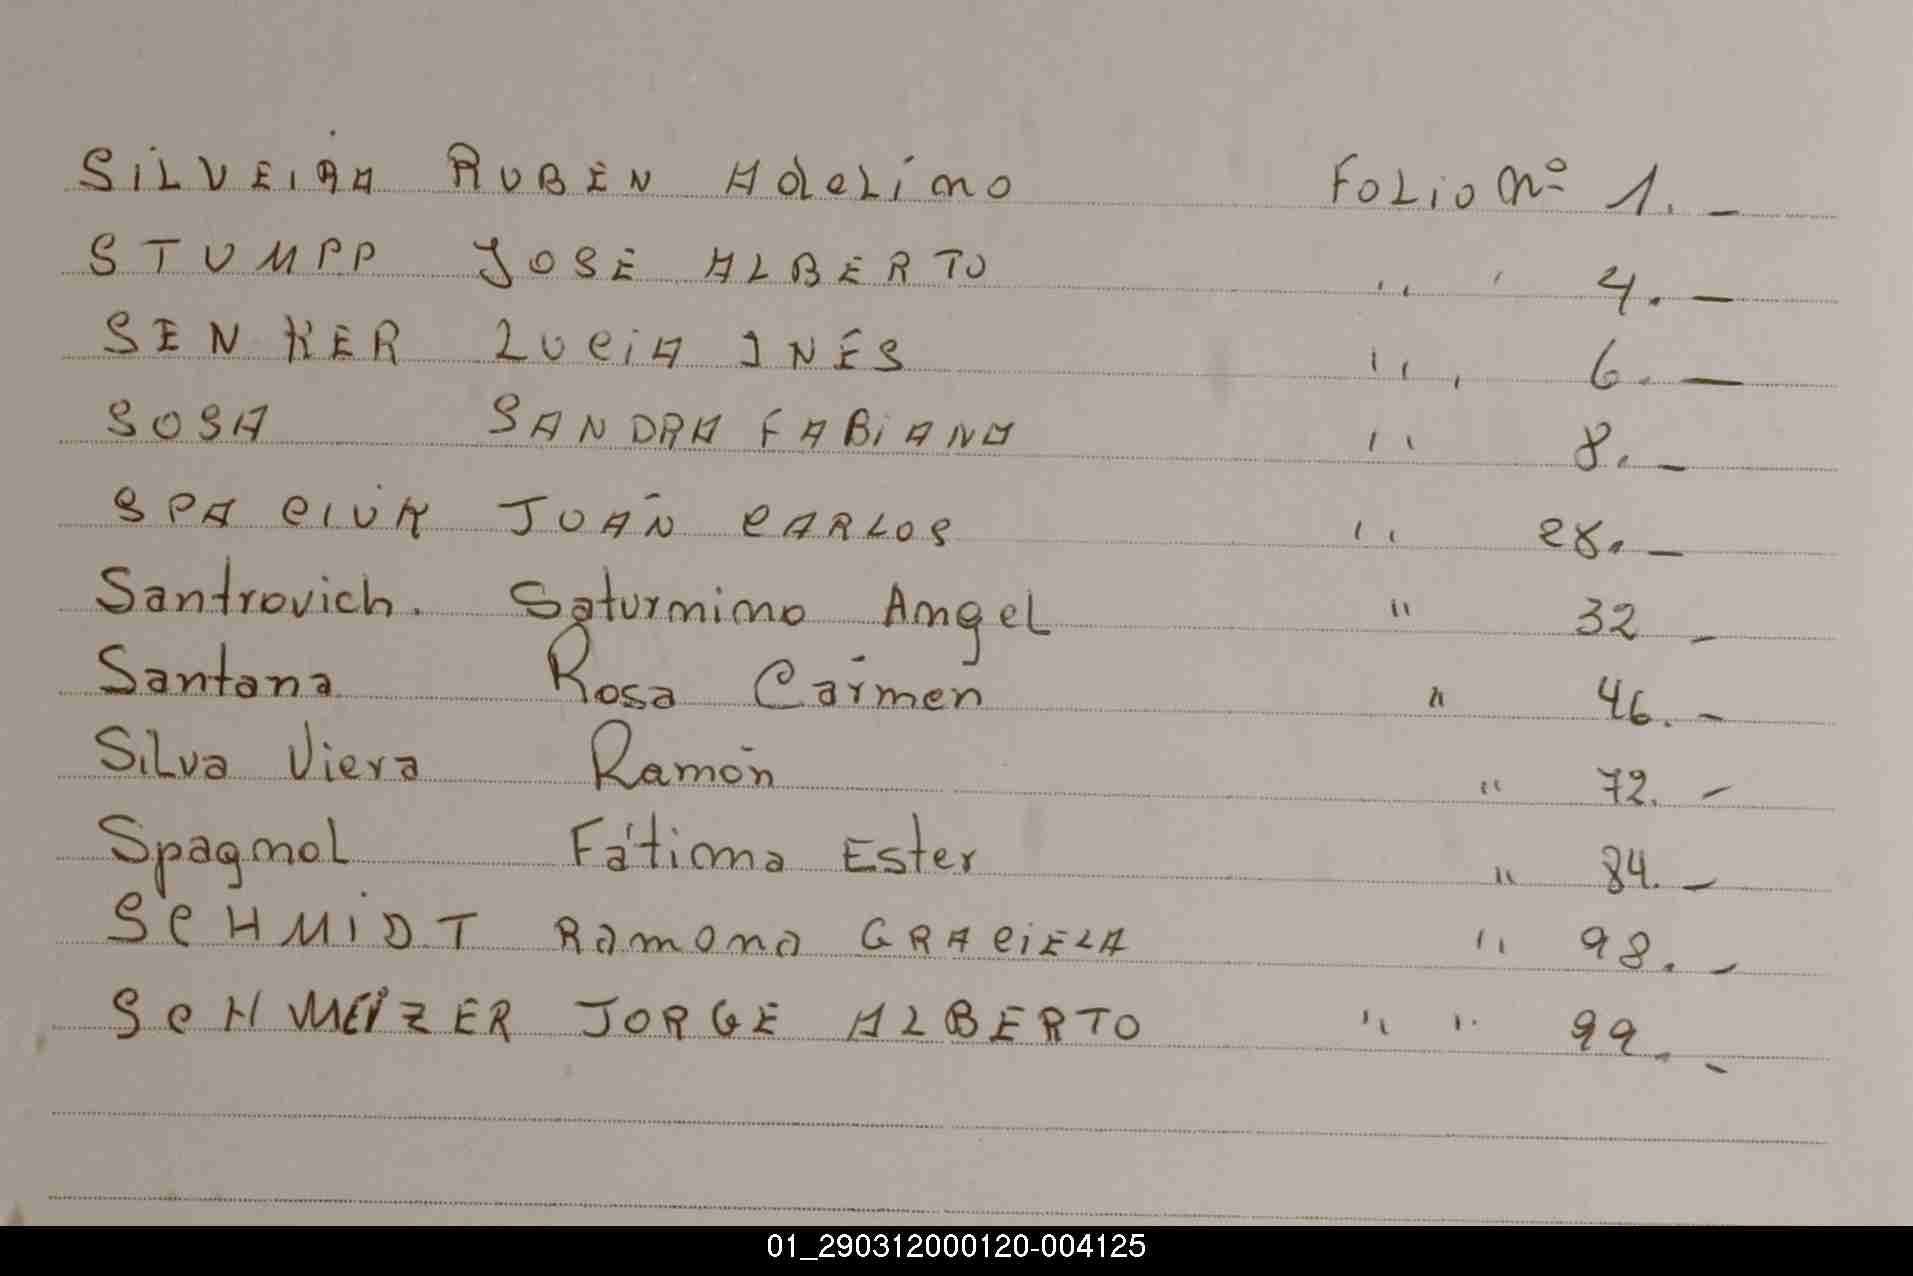 SILVEIRA RUBEN Adelimo FOLIO Nº 1.-
STUMPP JOSE ALBERTO " " 4.-
SENKER LUCIA INÉS " " 6.-
SOSA SANDRA FABIANA " 8.-
SPACIUK JUAN CARLOS " 28.-
Santrovich. Saturnino Angel " 32 -
Santana Rosa Carmen " 46.-
Silva Viera Ramón " 72.-
Spagnol Fátima Ester " 84.-
SCHMIDT Ramona GRACIELA " 98.-
SCHMEIZER JORGE ALBERTO " " 99.-
01_290312000120-004125